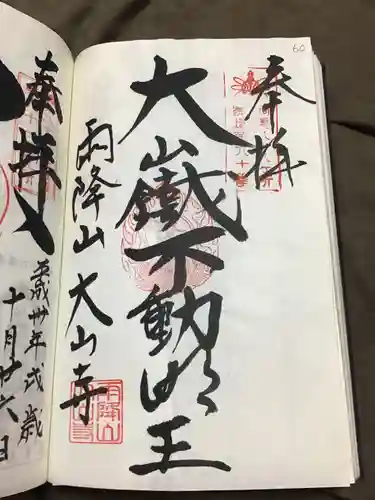 60
奉拝
大山鐵不動明王
雨降山 大山寺
奉拝
平成卅年戌歳
十月廿六日